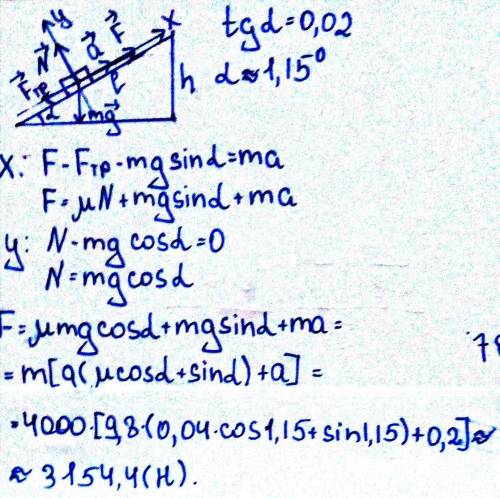 y N⃗ a⃗ F⃗ x
F⃗тр α l h
mg⃗
tgα=0,02
α≈1,15°
x: F-Fтр-mgsinα=ma
F=μN+mgsinα+ma
y: N-mgcosα=0
N=mgcosα
F=μmgcosα+mgsinα+ma=
=m[g(μcosα+sinα)+a]=
=4000·[9,8·(0,04·cos1,15+sin1,15)+0,2]≈
≈3154,4(Н).